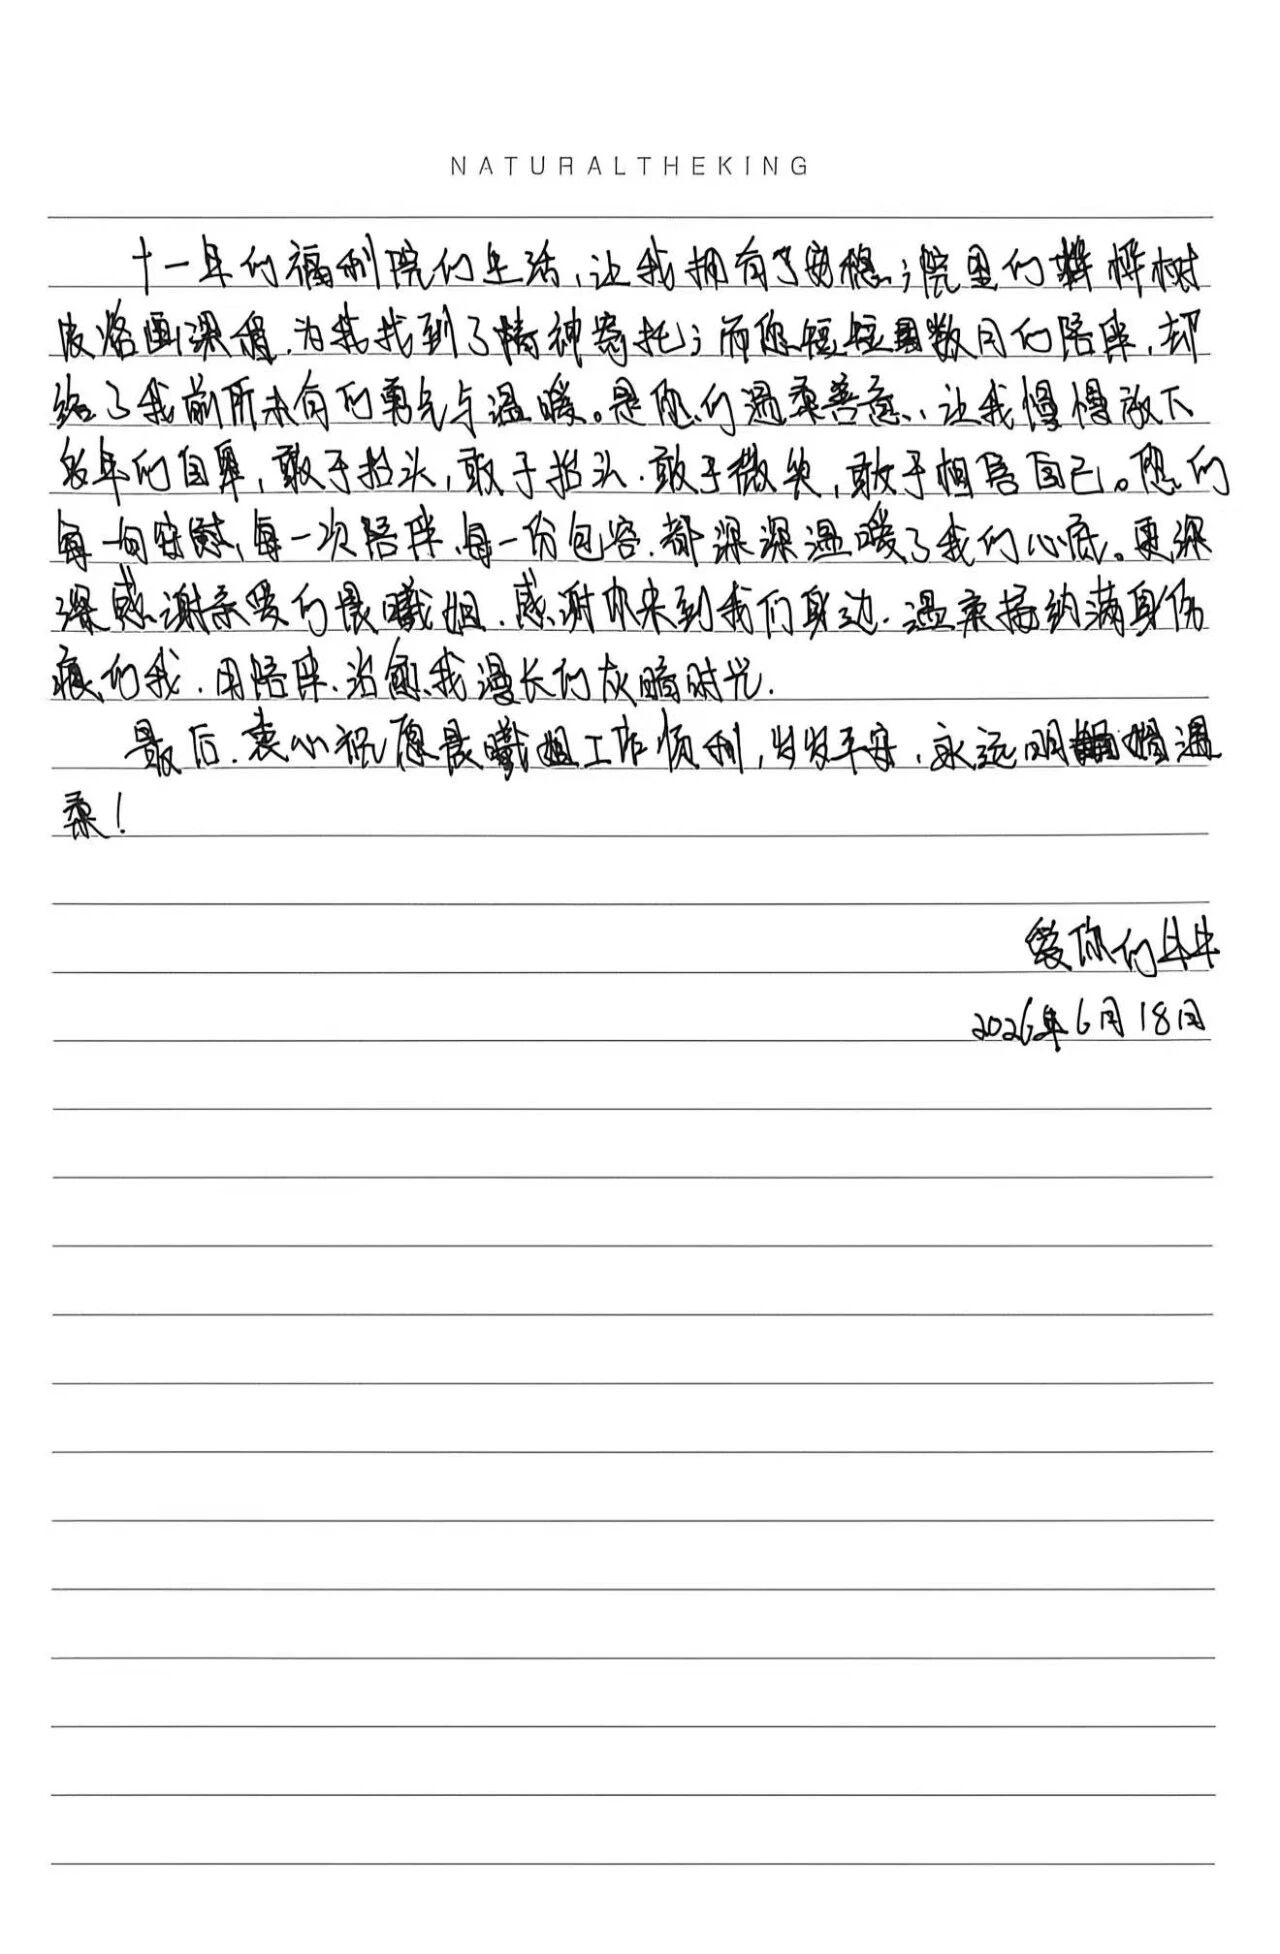 NATURALTHEKING
十一年的福利院的生活,让我拥有了安稳;院里的桦树
皮烙画课程,为我找到了精神寄托;而您短短数月的陪伴,却
给了我前所未有的勇气与温暖。是您的温柔善意,让我慢慢放下
多年的自卑,敢于抬头,敢于抬头,敢于微笑,敢于相信自己。您的
每一句安慰,每一次陪伴,每一份包容,都深深温暖了我的心底。更深
深感谢亲爱的晨曦姐,感谢你来到我们身边,温柔接纳满身伤
痕的我,用陪伴治愈我漫长的灰暗时光.
最后,衷心祝愿晨曦姐工作顺利,岁岁平安,永远明媚温
柔!
爱你的牛牛
2026年6月18日